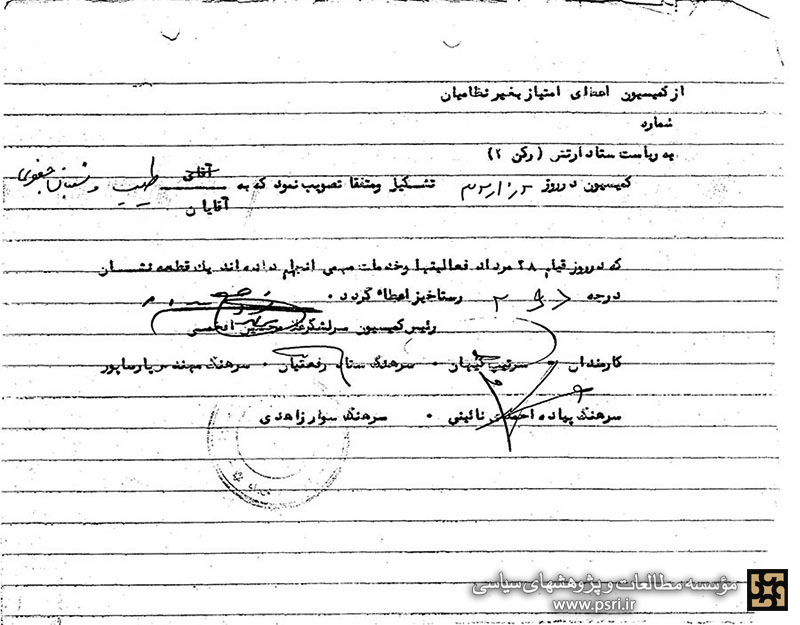 از کمیسیون اعطای امتیاز بغیر نظامیان
شماره
به ریاست ستاد ارتش (رکن ۲)
کمیسیون در روز تشکیل و متفقا تصویب نمود که به آقای طیب و
آقایان
که در روز قیام ۲۸ مرداد فعالیتها و خدمات مهمی انجام داده اند یک قطعه نشان
درجه ۲ رستاخیز اعطاء گردد ۰
رئیس کمیسیون سرلشگر
کارمندان ۰ سرتیپ کیهان ۰ سرهنگ ستاد رفعتیان ۰ سرهنگ مهندس پارساپور
سرهنگ پیاده نائینی ۰ سرهنگ سوار زاهدی
مؤسسه مطالعات و پژوهشهای سیاسی
www.psri.ir